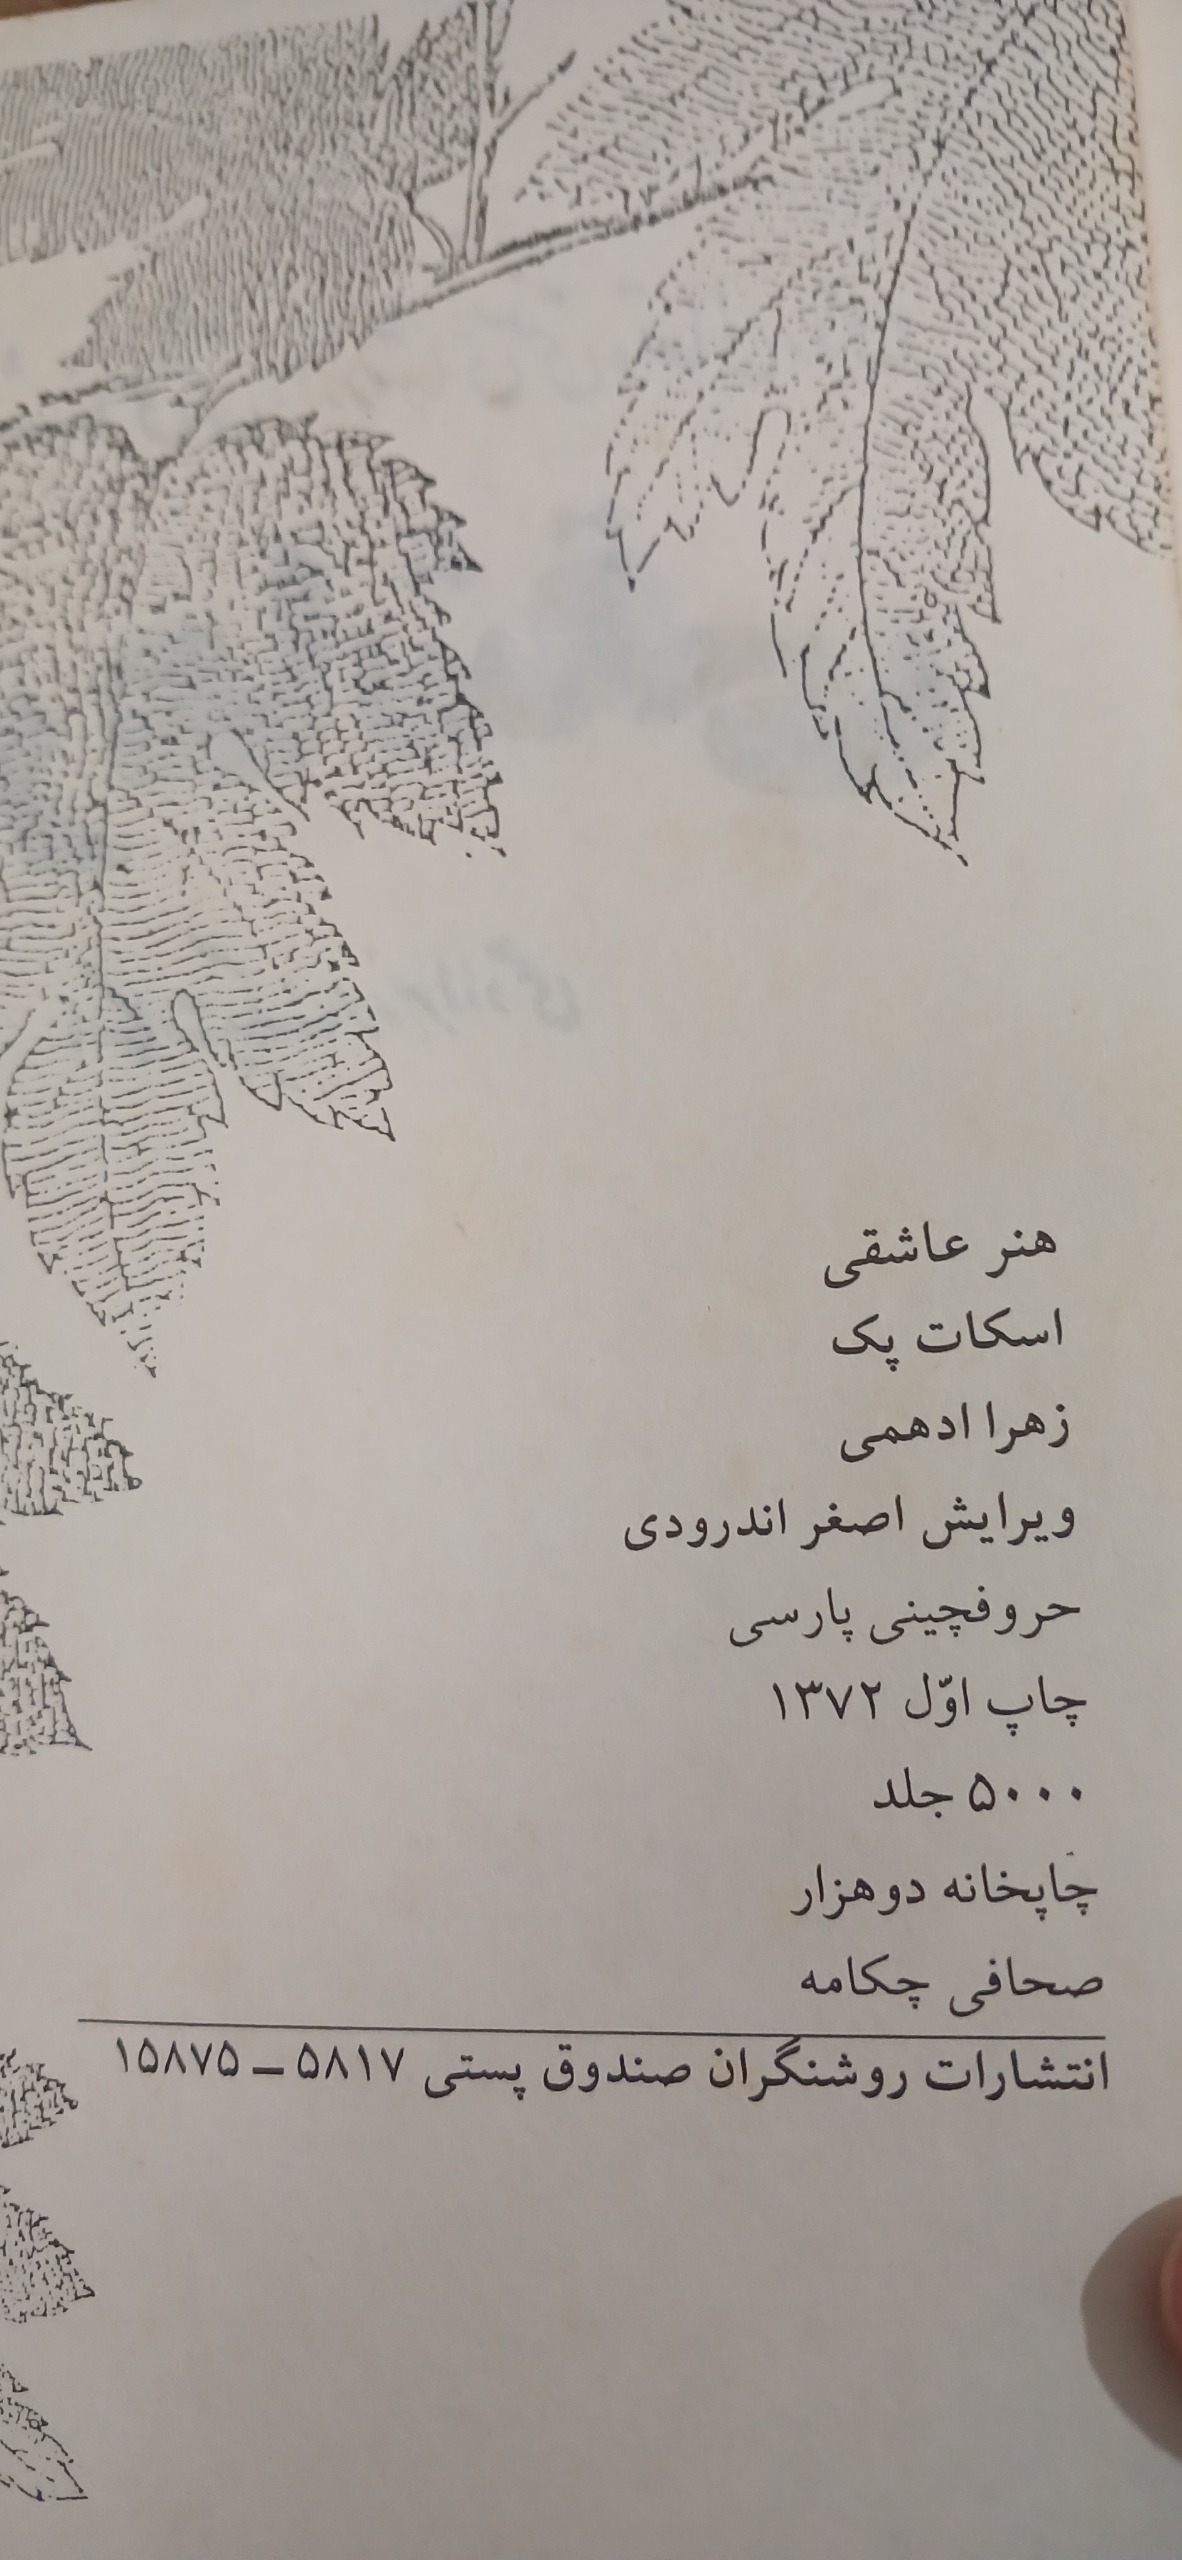 هنر عاشقی
اسکات پک
زهرا ادهمی
ویرایش اصغر اندرودی
حروفچینی پارسی
چاپ اوّل ۱۳۷۲
۵۰۰۰ جلد
چاپخانه دوهزار
صحافی چکامه
انتشارات روشنگران صندوق پستی ۵۸۱۷ – ۱۵۸۷۵